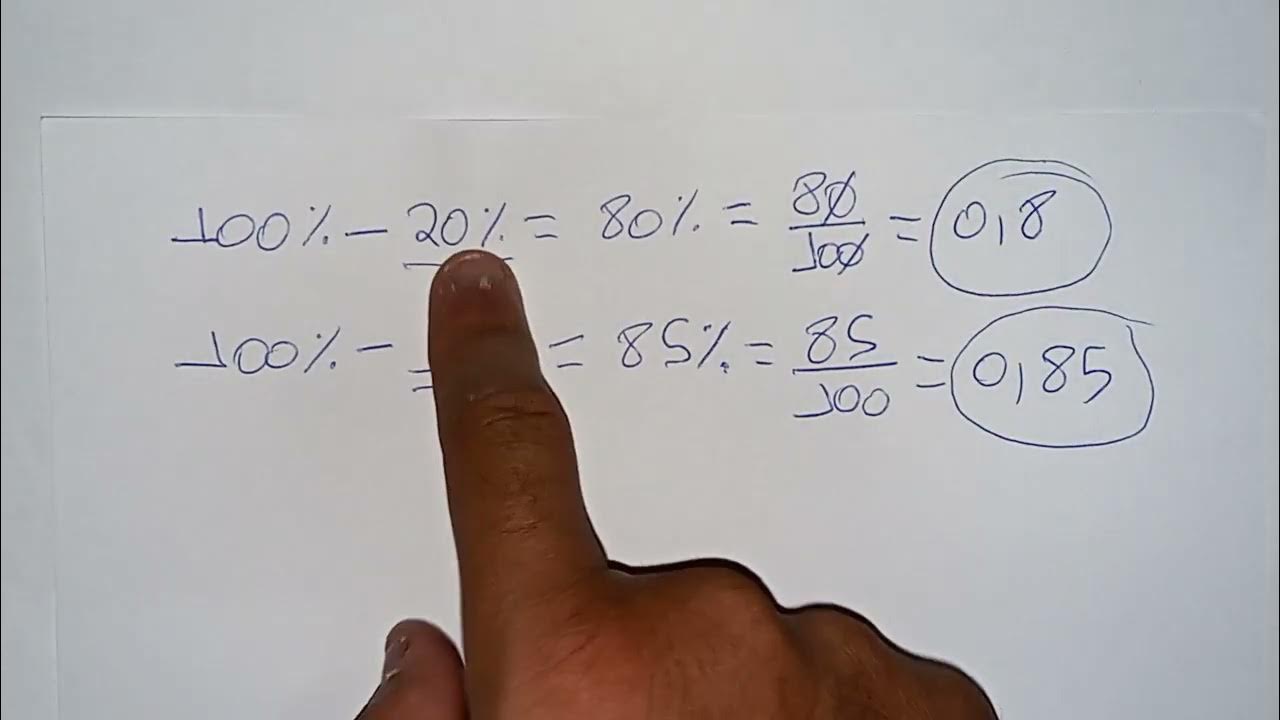 100% - 20% = 80% = 80/100 = 0,8
100% - = 85% = 85/100 = 0,85